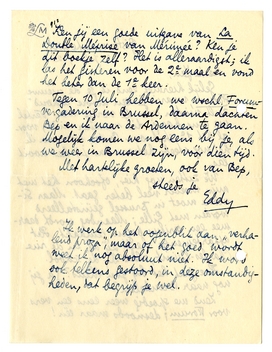 Ken jij een goede uitgave van La
Double Méprise van Mérimée? Ken je
dit boekje zelf? Het is alleraardigst; ik
las het gisteren voor de 2e maal en vond
het beter dan de 1e keer.
Tegen 10 Juli hebben we wschl. Forum-
vergadering in Brussel, daarna dachten
Bep en ik naar de Ardennen te gaan.
Mogelijk komen we nog eens bij je, als
we weer in Brussel zijn, vóór dien tijd.
Met hartelijke groeten, ook van Bep,
steeds je
Eddy
Ik werk op het oogenblik aan "verha-
lend proza", maar of het goed wordt
weet ik nog absoluut niet. Ik word
ook telkens gestoord, in deze omstandig-
heden, dat begrijp je wel.